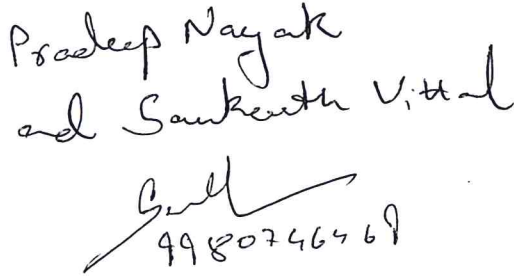 Pradeep Nayak
and Sankeerth Vittal
9980746469